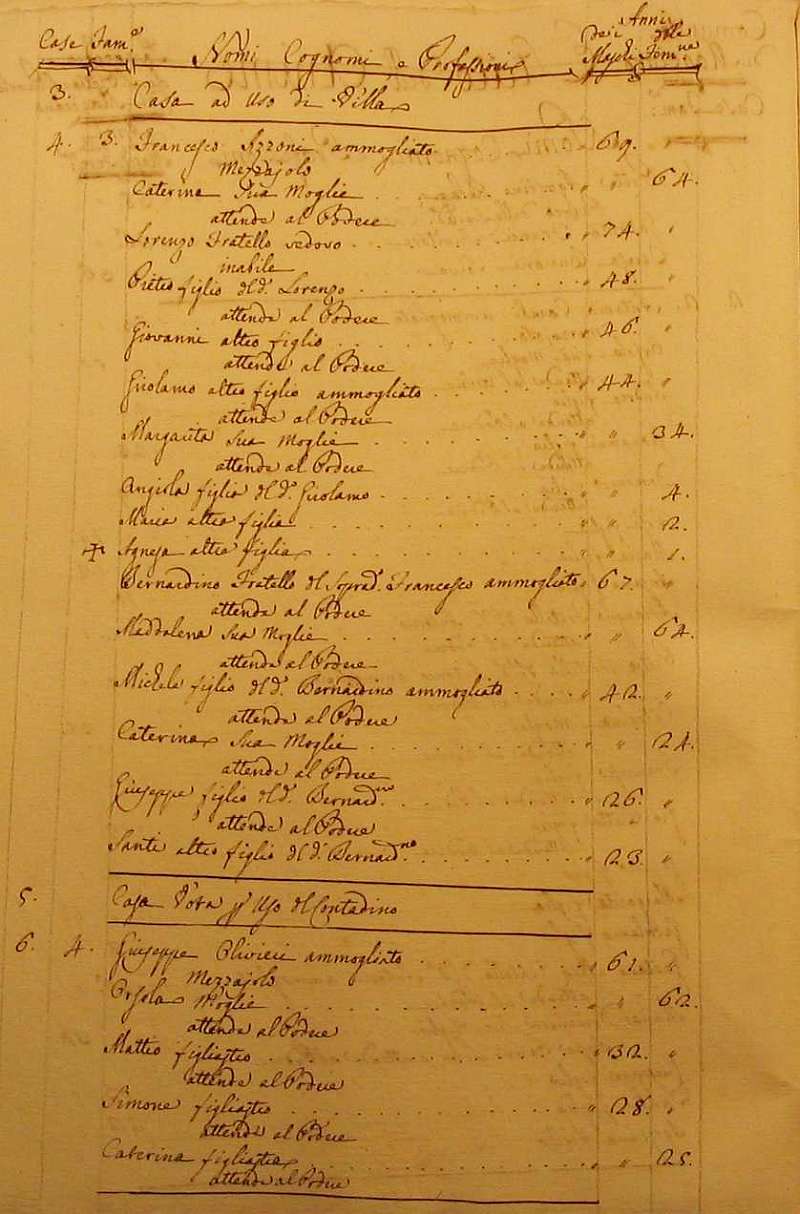 Case Fam.e Nomi Cognomi e Professioni Anni dei Maschi delle Fem.ne
3. Casa ad Uso di Villa
4. 3. Francesco Azzoni ammogliato 69. "
Mezzajolo
Caterina Sua Moglie " 64.
attende al Podere
Lorenzo Fratello vedovo " 74. "
inabile
Pietro figlio del d.o Lorenzo " 48. "
attende al Podere
Giovanni altro figlio " 46. "
attende al Podere
Girolamo altro figlio ammogliato " 44. "
attende al Podere
Margarita Sua Moglie " " 34.
attende al Podere
Angiola figlia del d.o Girolamo " " 4.
Maria altra figlia " " 2.
✝ Agnesa altra figlia " " 1.
Bernardino Fratello del Soprad.o Francesco ammogliato " 67. "
attende al Podere
Maddalena Sua Moglie " " 64.
attende al Podere
Michele figlio del d.o Bernardino ammogliato " 42. "
attende al Podere
Caterina Sua Moglie " " 24.
attende al Podere
Giuseppe figlio del d.o Bernard.no " 26. "
attende al Podere
Santi altro figlio del d.o Bernard.no " 23. "
5. Casa Vota p Uso del Contadino
6. 4. Giuseppe Olivieri ammogliato " 61. "
Mezzajolo
Orsola Moglie " " 62.
attende al Podere
Matteo figliastro " 32. "
attende al Podere
Simone figliastro " 28. "
attende al Podere
Caterina figliastra " " 25.
attende al Podere